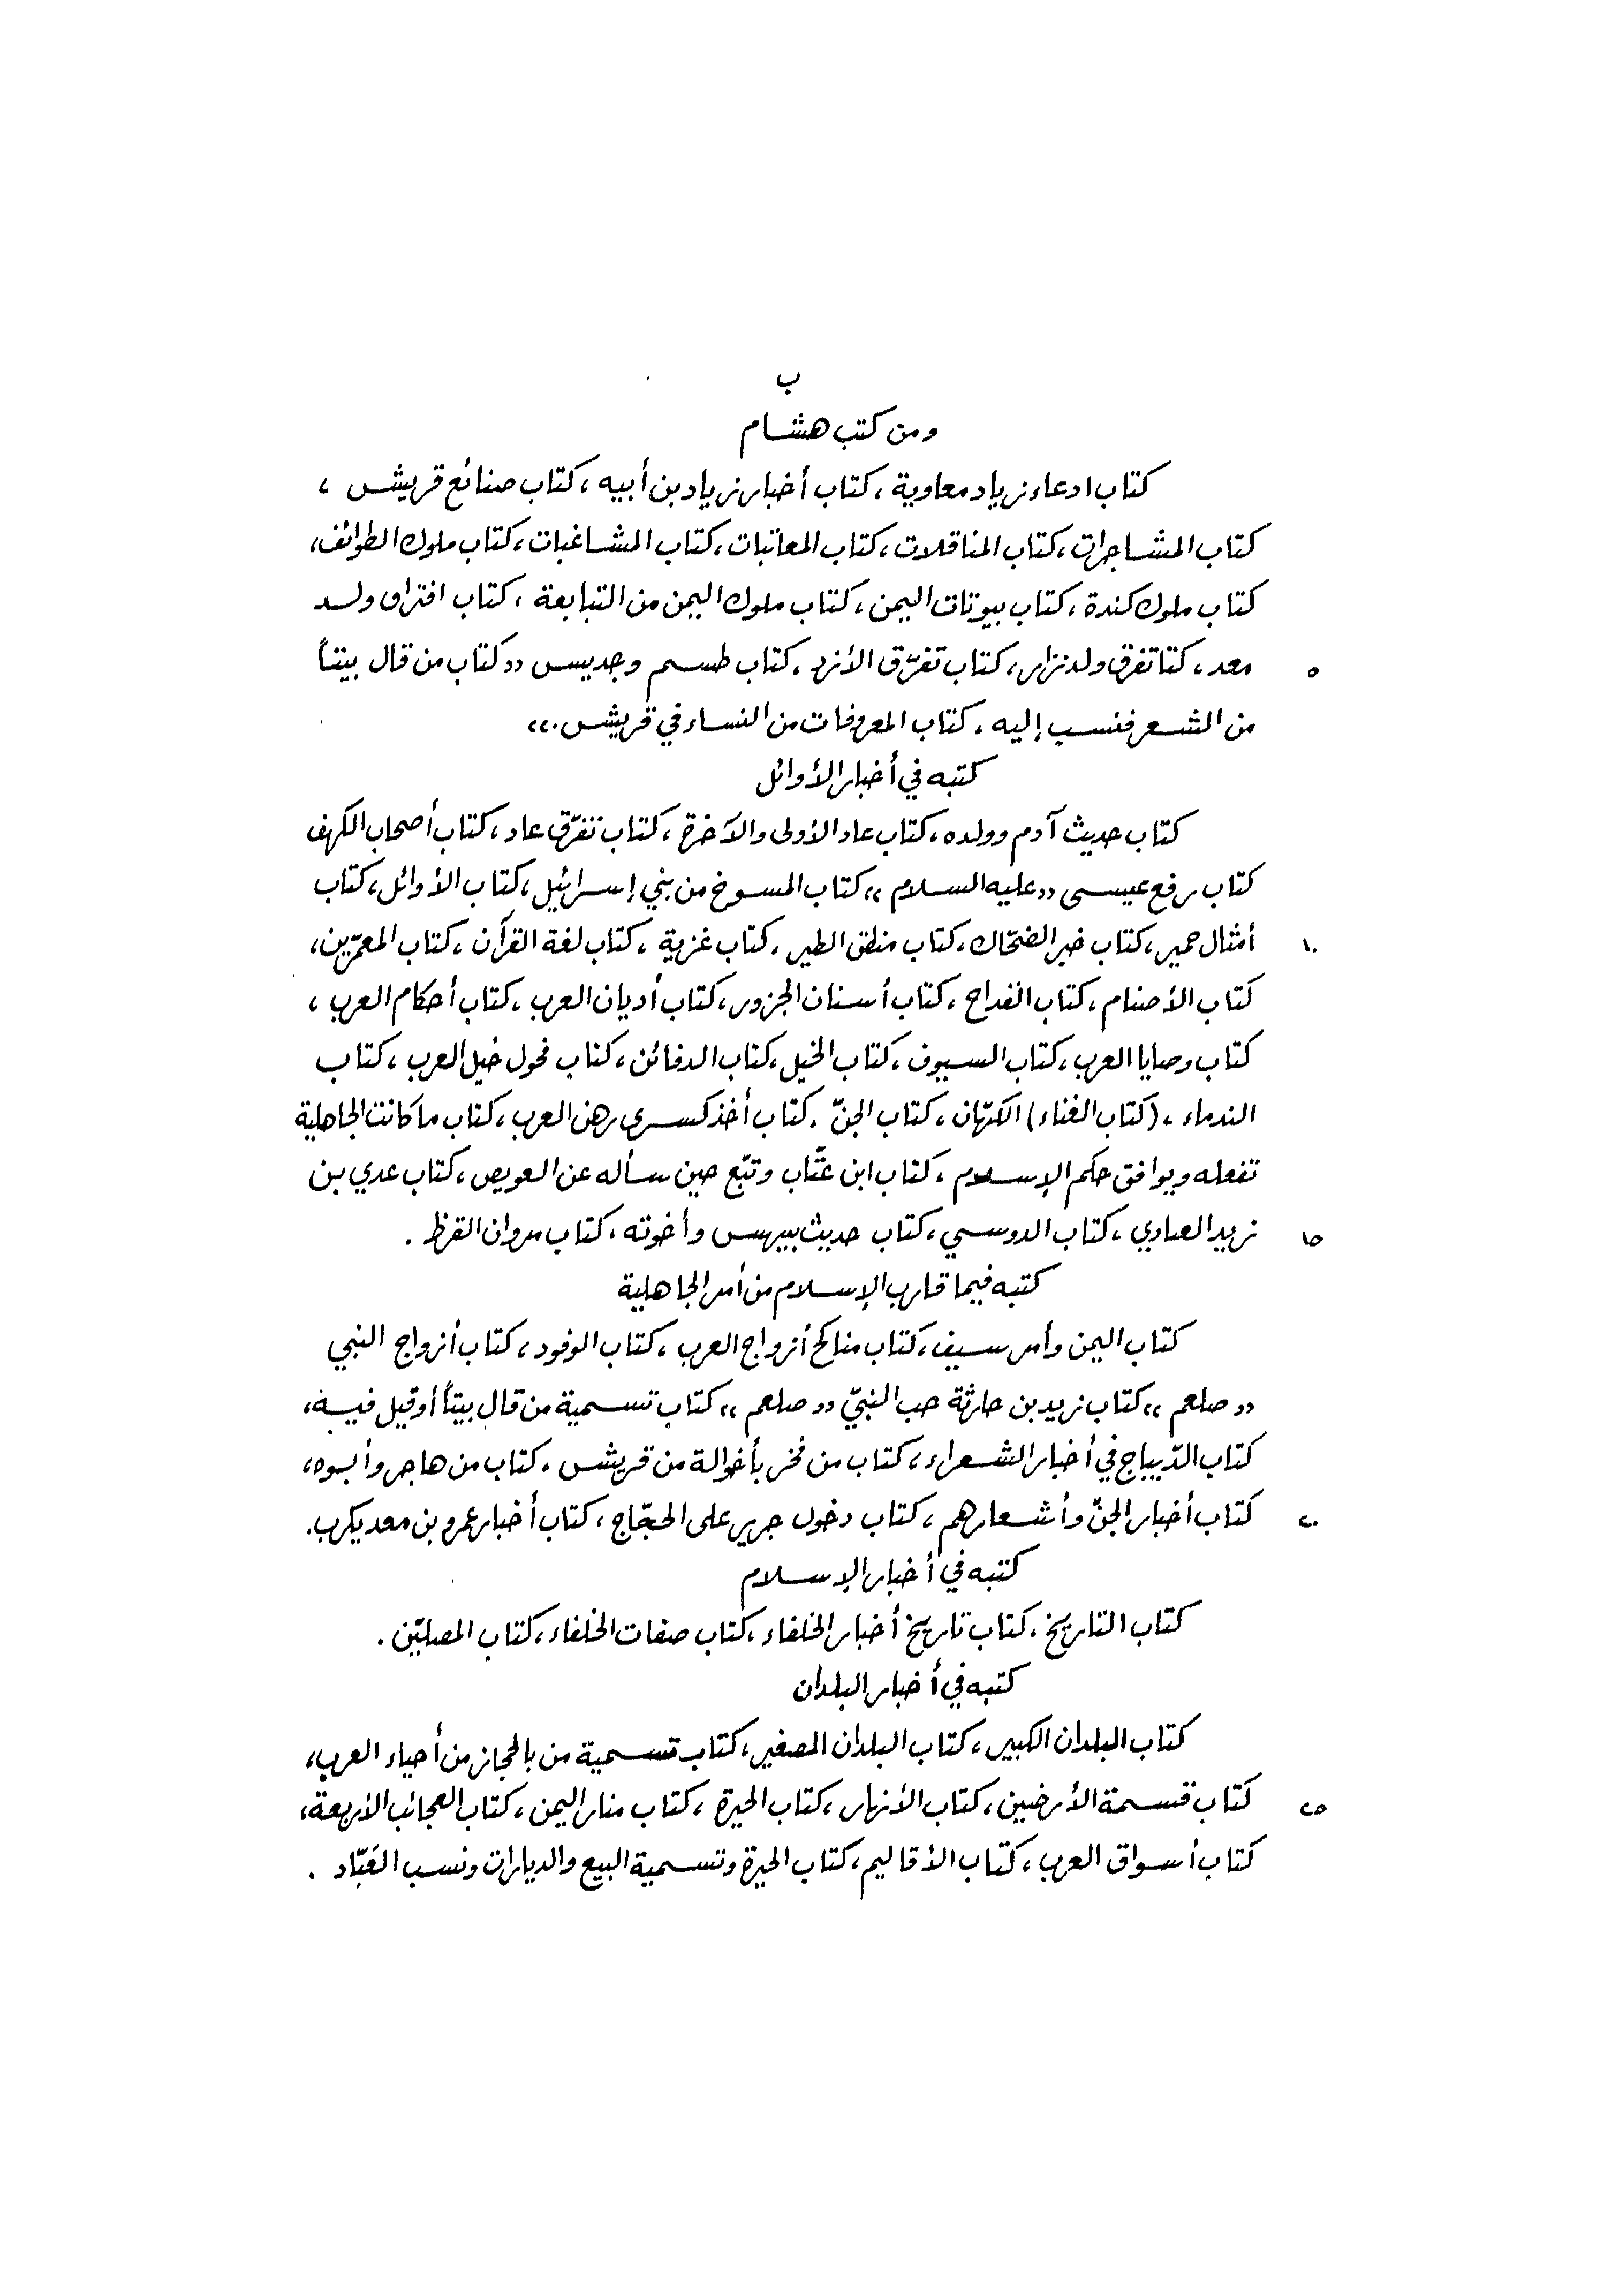 ب
ومن كتب هشام
كتاب ادعاء زياد معاوية ، كتاب أخبار زياد بن أبيه ، كتاب صنائع قريش ،
كتاب المشاجرات ، كتاب المناقلات ، كتاب المعاتبات ، كتاب المشاغبات ، كتاب ملوك الطوائف ،
كتاب ملوك كندة ، كتاب بيوتات اليمن ، كتاب ملوك اليمن من التبابعة ، كتاب افتراق ولد
٥ معد ، كتا تفرق ولد نزار ، كتاب تفرّق الأزد ، كتاب طسم وجديس «كتاب من قال بيتاً
من الشعر فنسب إليه ، كتاب المعروفات من النساء في قريش .»
كتبه في أخبار الأوائل
كتاب حديث آدم وولده ، كتاب عاد الأولى والآخرة ، كتاب تفرّق عاد ، كتاب أصحاب الكهف
كتاب رفع عيسى «عليه السلام» كتاب المسوخ من بني إسرائيل ، كتاب الأوائل ، كتاب
١٠ أمثال حمير ، كتاب خبر الضحّاك ، كتاب منطق الطير ، كتاب غزية ، كتاب لغة القرآن ، كتاب المعمّرين ،
كتاب الأصنام ، كتاب القداح ، كتاب أسنان الجزور ، كتاب أديان العرب ، كتاب أحكام العرب ،
كتاب وصايا العرب ، كتاب السيوف ، كتاب الخيل ، كتاب الدفائن ، كتاب فحول خيل العرب ، كتاب
الندماء ، (كتاب الغناء) الكهّان ، كتاب الجنّ . كتاب أخذ كسرى رهن العرب ، كتاب ما كانت الجاهلية
تفعله ويوافق حكم الإسلام ، كتاب ابن عتّاب وتبّع حين سأله عن العويص ، كتاب عدي بن
١٥ زيد العبادي ، كتاب الدوسي ، كتاب حديث بيهس وأخوته ، كتاب مروان القرظ .
كتبه فيما قارب الإسلام من أمر الجاهلية
كتاب اليمن وأمر سيف ، كتاب مناكح أزواج العرب ، كتاب الوفود ، كتاب أزواج النبي
«صلعم» كتاب زيد بن حارثة حب النبيّ «صلعم» كتاب تسمية من قال بيتاً أو قيل فيه ،
كتاب الدّيباج في أخبار الشعراء ، كتاب من فخر بأخوالة من قريش . كتاب من هاجر وأبوه ،
٢٠ كتاب أخبار الجنّ وأشعارهم ، كتاب دخول جرير على الحجّاج ، كتاب أخبار عمرو بن معد يكرب .
كتبه في أخبار الإسلام
كتاب التاريخ ، كتاب تاريخ أخبار الخلفاء ، كتاب صفات الخلفاء ، كتاب المصلّين .
كتبه في أخبار البلدان
كتاب البلدان الكبير ، كتاب البلدان الصغير ، كتاب تسمية من بالحجاز من أحياء العرب ،
٢٥ كتاب قسمة الأرضين ، كتاب الأنهار ، كتاب الحيرة ، كتاب منار اليمن ، كتاب العجائب الأربعة ،
كتاب أسواق العرب ، كتاب الأقاليم ، كتاب الحيرة وتسمية البيع والديارات ونسب العَبّاد .